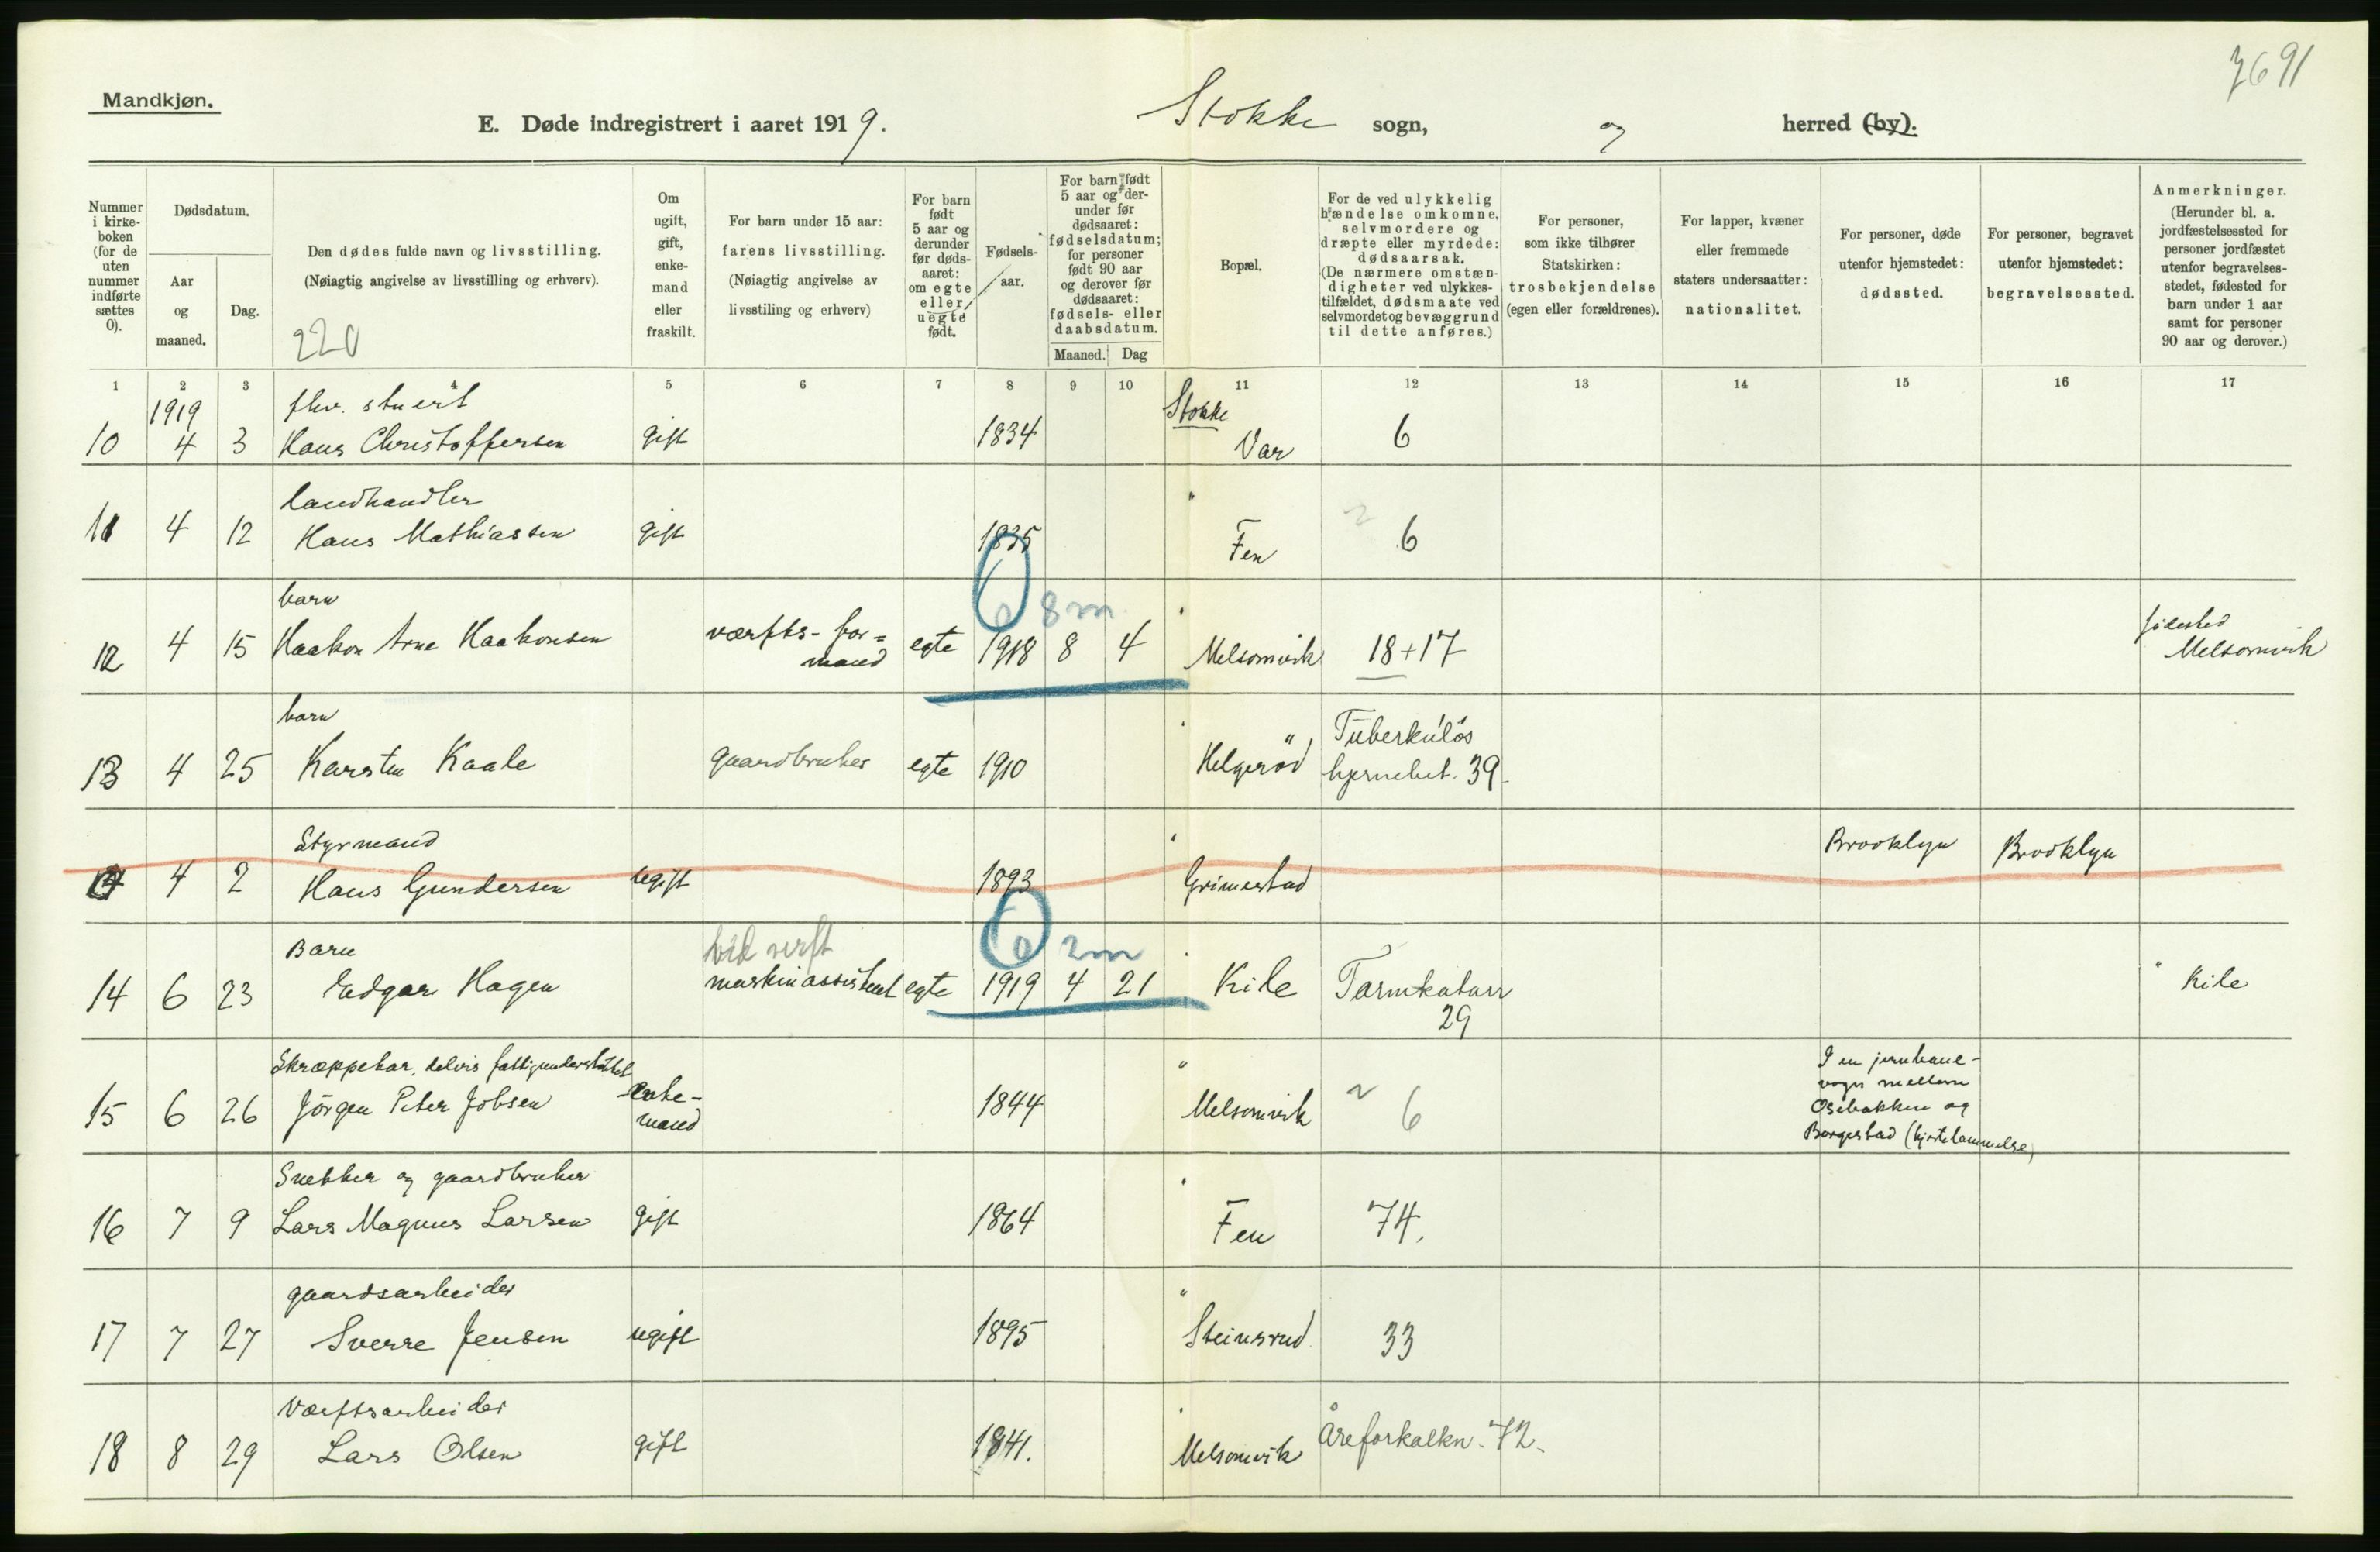 7691
Mandkjøn.
E. Døde indregistrert i aaret 1919. Stokke sogn, og herred (by).
Nummer i kirke-boken (for de uten nummer indførte sættes 0).
Dødsdatum.
Aar og maaned.
Dag.
Den dødes fulde navn og livsstilling.
(Nøiagtig angivelse av livsstilling og erhverv).
220
Om ugift, gift, enke-mand eller fraskilt.
For barn under 15 aar: farens livsstilling.
(Nøiagtig angivelse av livsstiling og erhverv)
For barn født 5 aar og derunder før døds-aaret: om egte eller uegte født.
Fødsels-aar.
For barn født 5 aar og der-under før dødsaaret: fødselsdatum; for personer født 90 aar og derover før dødsaaret: fødsels- eller daabsdatum.
Maaned. Dag
Bopæl.
For de ved ulykkelig hændelse omkomne, selvmordere og dræpte eller myrdede: dødsaarsak.
(De nærmere omstæn-digheter ved ulykkes-tilfældet, dødsmaate ved selvmordet og bevæggrund til dette anføres.)
For personer, som ikke tilhører Statskirken: trosbekjendelse (egen eller forældrenes).
For lapper, kvæner eller fremmede staters undersaatter: nationalitet.
For personer, døde utenfor hjemstedet: dødssted.
For personer, begravet utenfor hjemstedet: begravelsessted.
Anmerkninger.
(Herunder bl. a. jordfæstelsessted for personer jordfæstet utenfor begravelses-stedet, fødested for barn under 1 aar samt for personer 90 aar og derover.)
1 2 3 4 5 6 7 8 9 10 11 12 13 14 15 16 17
1919 fhv. stuert Stokke
10 4 3 Hans Christoffersen gift 1834 Var 6
landhandler "
11 4 12 Hans Mathiassen gift 1835 Fen 2 6
barn 0 8 m " fødested
12 4 15 Haakon Arne Haakonsen værfts-for=mand egte 1918 8 4 Melsomvik 18+17 Melsomvik
barn " Tuberkuløs
13 4 25 Karsten Kaale gaardbruker egte 1910 Helgerød hjernebet. 39
Styrmand " Brooklyn Brooklyn
4 2 Hans Gundersen ugift 1893 Grimestad
Barn ved verft 0 2 m "
14 6 23 Edgar Hagen maskinassistent egte 1919 4 21 Kile Tarmkatarr 29 " Kile
Skræppekar, delvis fattigunderstøttet " I en jernbane-
15 6 26 Jörgen Peter Jobsen enke-mand 1844 Melsomvik 2 6 vogn mellem
Osebakken og
Borgestad (hjertelammelse)
Snekker og gaardbruker "
16 7 9 Lars Magnus Larsen gift 1864 Fen 74.
gaardsarbeider "
17 7 27 Sverre Jensen ugift 1895 Steinsrud 33
Værftsarbeider "
18 8 29 Lars Olsen gift 1841. Melsomvik Åreforkalkn. 72.